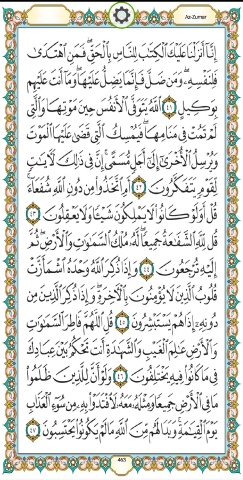 Az-Zumar
إِنَّا أَنزَلْنَا عَلَيْكَ الْكِتَٰبَ لِلنَّاسِ بِالْحَقِّ ۖ فَمَنِ اهْتَدَىٰ
فَلِنَفْسِهِۦ ۖ وَمَن ضَلَّ فَإِنَّمَا يَضِلُّ عَلَيْهَا ۖ وَمَا أَنتَ عَلَيْهِم
بِوَكِيلٍ ٤١ اللَّهُ يَتَوَفَّى الْأَنفُسَ حِينَ مَوْتِهَا وَالَّتِي
لَمْ تَمُتْ فِي مَنَامِهَا ۖ فَيُمْسِكُ الَّتِي قَضَىٰ عَلَيْهَا الْمَوْتَ
وَيُرْسِلُ الْأُخْرَىٰ إِلَىٰ أَجَلٍ مُّسَمًّى ۚ إِنَّ فِي ذَٰلِكَ لَءَايَٰتٍ
لِّقَوْمٍ يَتَفَكَّرُونَ ٤٢ أَمِ اتَّخَذُوا مِن دُونِ اللَّهِ شُفَعَاءَ ۚ
قُلْ أَوَلَوْ كَانُوا لَا يَمْلِكُونَ شَيْـًٔا وَلَا يَعْقِلُونَ ٤٣
قُل لِّلَّهِ الشَّفَٰعَةُ جَمِيعًا ۖ لَّهُۥ مُلْكُ السَّمَٰوَٰتِ وَالْأَرْضِ ۖ ثُمَّ
إِلَيْهِ تُرْجَعُونَ ٤٤ وَإِذَا ذُكِرَ اللَّهُ وَحْدَهُ اشْمَأَزَّتْ
قُلُوبُ الَّذِينَ لَا يُؤْمِنُونَ بِالْءَاخِرَةِ ۖ وَإِذَا ذُكِرَ الَّذِينَ مِن
دُونِهِۦ إِذَا هُمْ يَسْتَبْشِرُونَ ٤٥ قُلِ اللَّهُمَّ فَاطِرَ السَّمَٰوَٰتِ
وَالْأَرْضِ عَٰلِمَ الْغَيْبِ وَالشَّهَٰدَةِ أَنتَ تَحْكُمُ بَيْنَ عِبَادِكَ
فِي مَا كَانُوا فِيهِ يَخْتَلِفُونَ ٤٦ وَلَوْ أَنَّ لِلَّذِينَ ظَلَمُوا
مَا فِي الْأَرْضِ جَمِيعًا وَمِثْلَهُۥ مَعَهُۥ لَافْتَدَوْا بِهِۦ مِن سُوءِ الْعَذَابِ
يَوْمَ الْقِيَٰمَةِ ۚ وَبَدَا لَهُم مِّنَ اللَّهِ مَا لَمْ يَكُونُوا يَحْتَسِبُونَ ٤٧
463